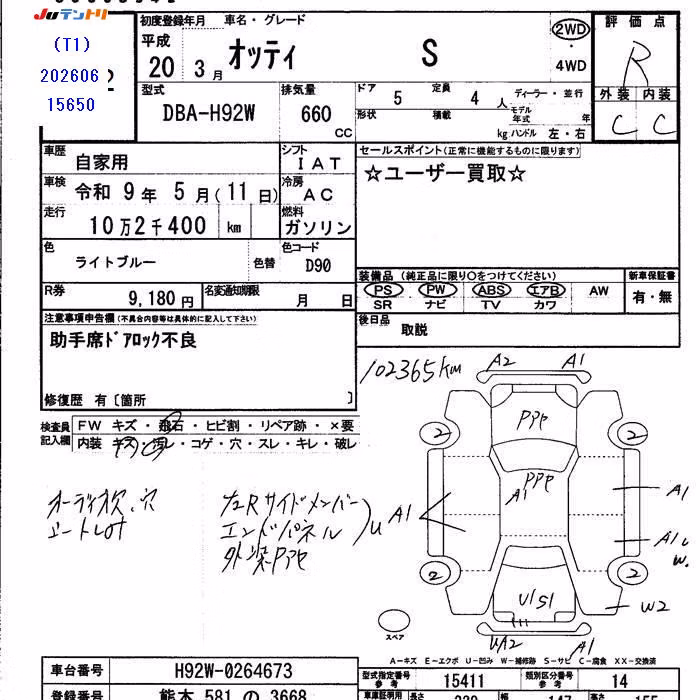 JUテントリ
(T1)
202606
15650
初度登録年月 車名・グレード
平成
20 3月 オッティ S
2WD
・
4WD
評価点
R
外装 内装
C C
型式 排気量
DBA-H92W 660 CC
ドア 5 定員 4 人 ディーラー・並行
形状 積載 kg モデル年式 年
ハンドル 左・右
車歴 自家用 シフト I A T
車検 令和 9年 5月(11日) 冷房 A C
走行 10万2千400 km 燃料 ガソリン
色 ライトブルー 色替 色コード D90
R券 9,180円 名変通知期限 月 日
セールスポイント(正常に機能するものに限ります)
☆ユーザー買取☆
装備品(純正品に限り○をつけてください) 新車保証書
PS PW ABS エアB AW 有・無
SR ナビ TV カワ
後日品 取説
注意事項申告欄(不具合内容等は具体的に記入して下さい)
助手席ドアロック不良
修復歴 有〔箇所 〕
検査員記入欄
FW キズ・飛石・ヒビ割・リペア跡・×要
内装 キズ・汚レ・コゲ・穴・スレ・キレ・破レ
102365km
A2 A1
2 2
PPP
PPP
A1
A1 A1
A1
2 2
U1S1
W2
UA2 A1
オーディオ欠.穴
エンドパネル
スペア
A-キズ E-エクボ U-凹み W-補修跡 S-サビ C-腐食 XX-交換済
車台番号 H92W-0264673
型式指定番号 参考 15411 類別区分番号 参考 14
登録番号 熊本 581 の 3668